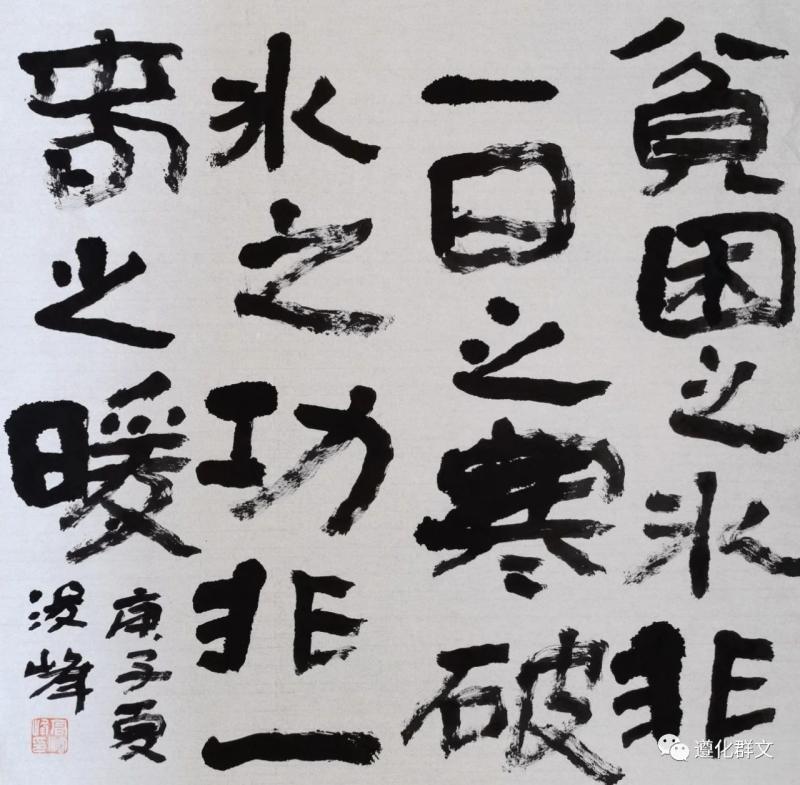 貧困之冰非
一日之寒破
冰之功非一
春之暖
庚子夏
峰
遵化群文